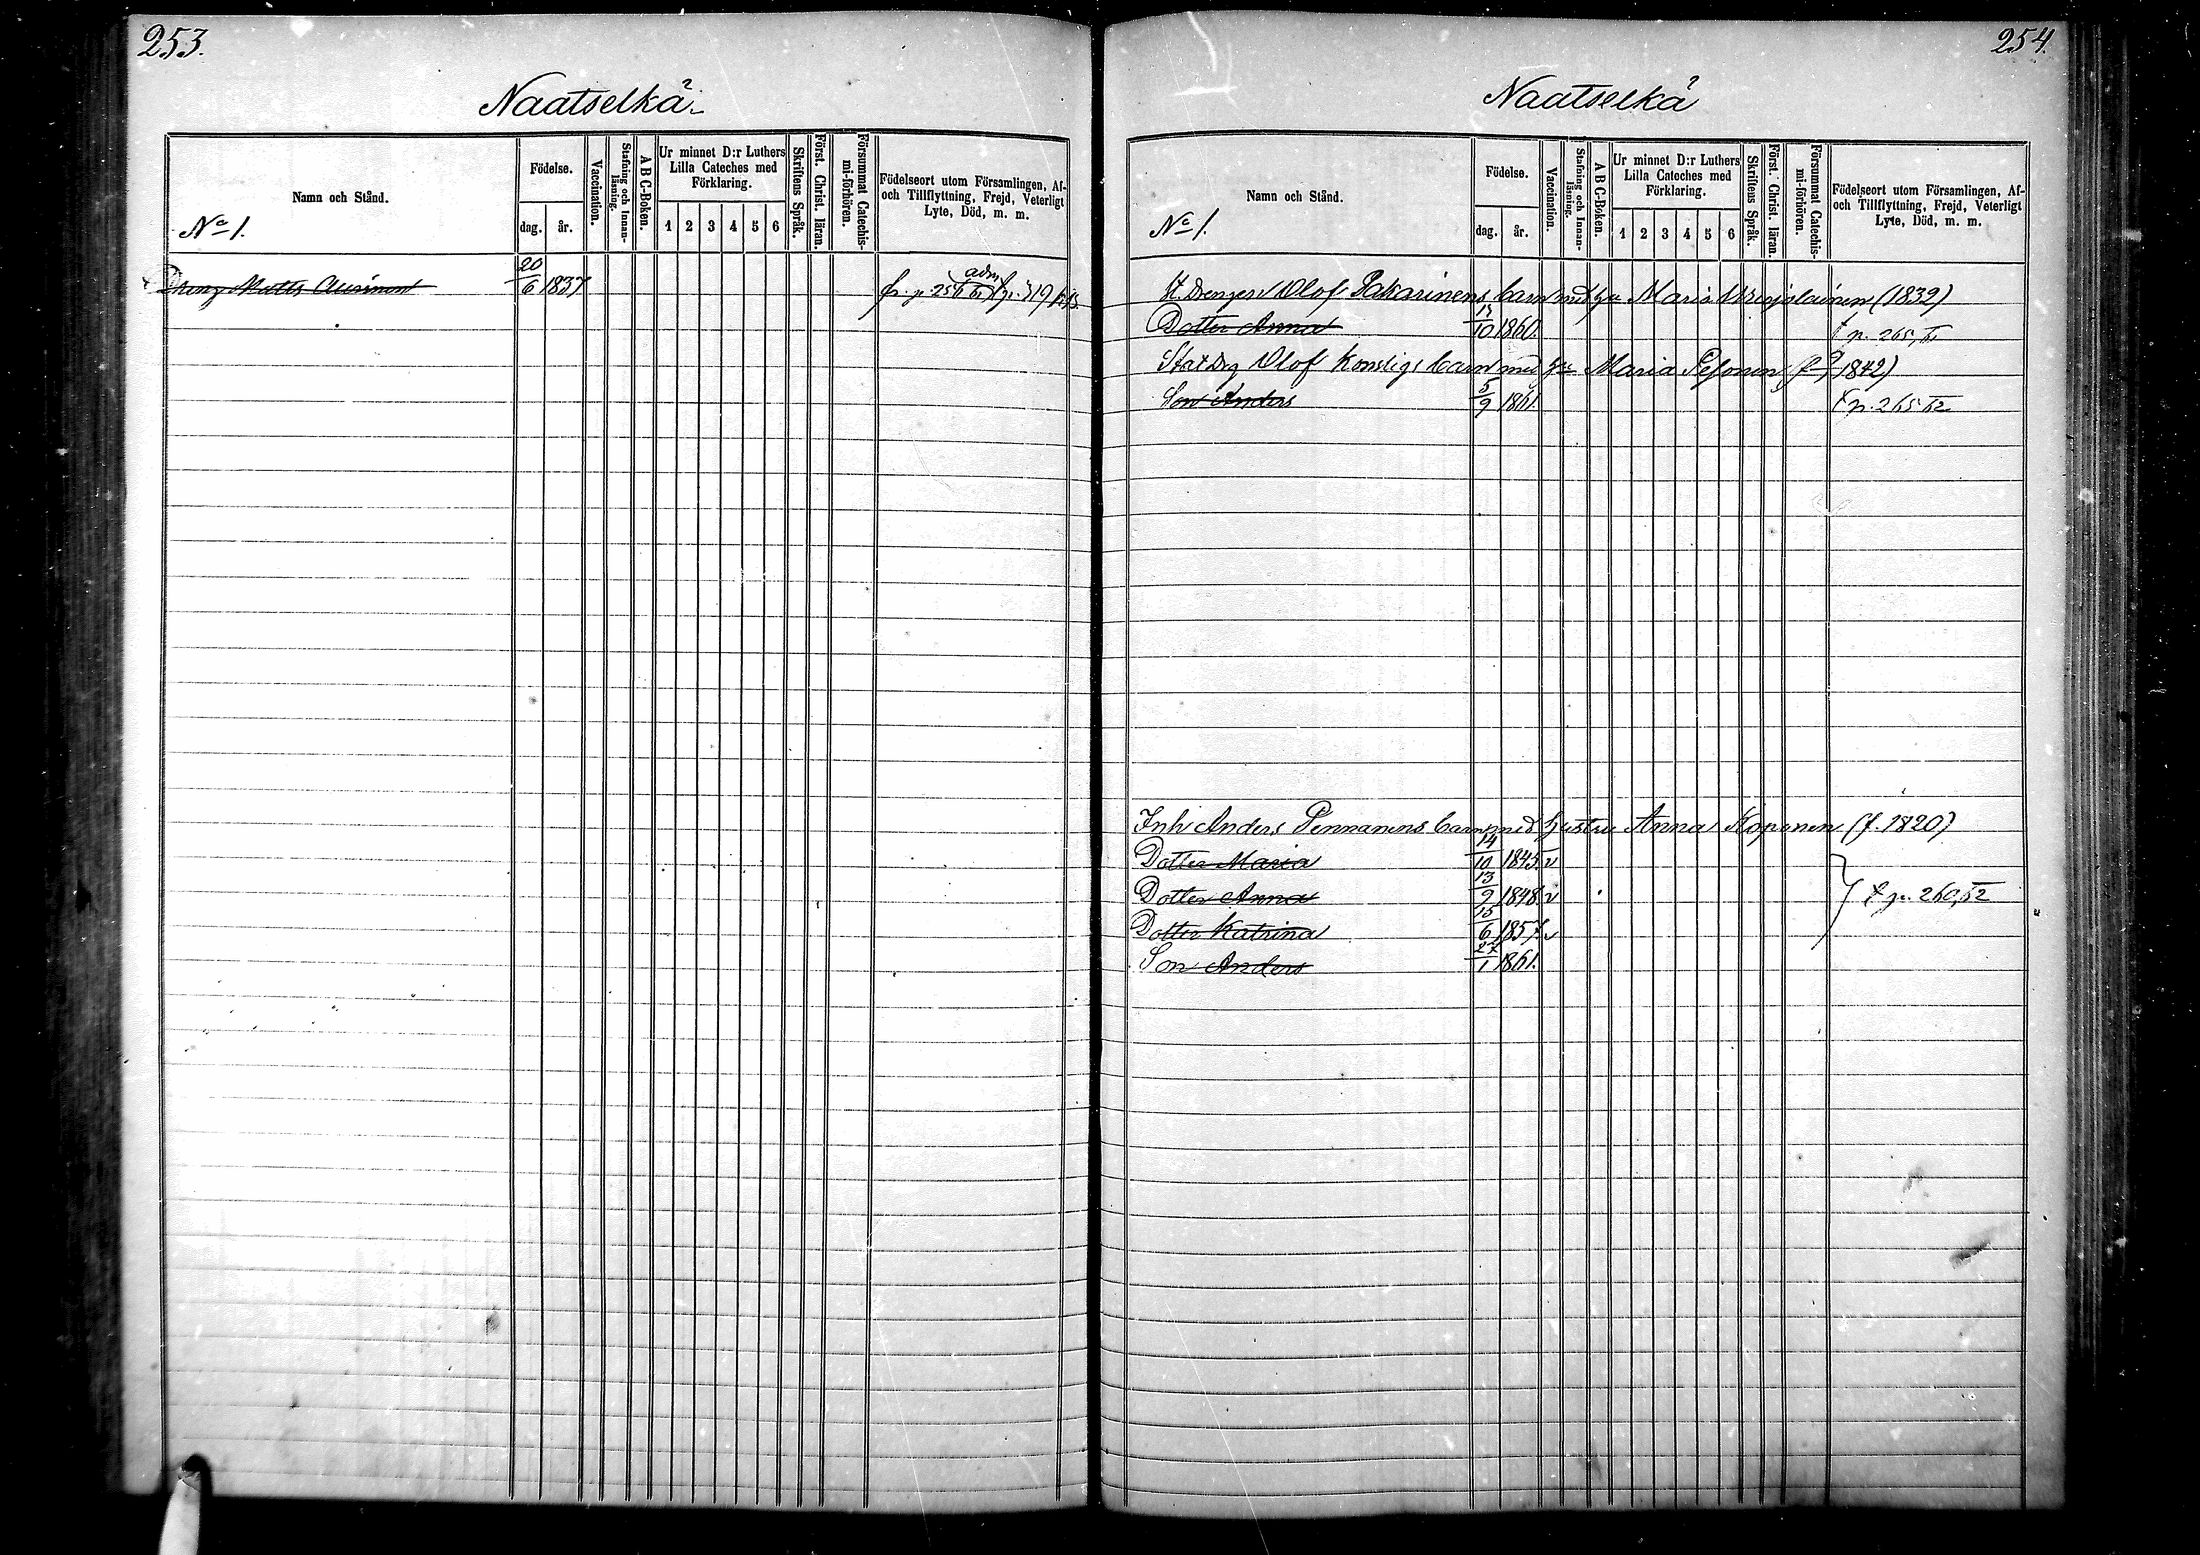 253.
Naatselkä
Namn och Stånd.
No 1.
Födelse.
dag. år.
Vaccination.
Stafning och Innanläsning.
A B C-Boken.
Ur minnet D:r Luthers Lilla Cateches med Förklaring.
1 2 3 4 5 6
Skriftens Språk.
Först. Christ. läran.
Försummat Catechismi-förhören.
Födelseort utom Församlingen, Af- och Tillflyttning, Frejd, Veterligt Lyte, Död, m. m.
Dreng Matts 20/6 1837
254.
Naatselkä
Namn och Stånd.
No 1.
Födelse.
dag. år.
Vaccination.
Stafning och Innanläsning.
A B C-Boken.
Ur minnet D:r Luthers Lilla Cateches med Förklaring.
1 2 3 4 5 6
Skriftens Språk.
Först. Christ. läran.
Försummat Catechismi-förhören.
Födelseort utom Församlingen, Af- och Tillflyttning, Frejd, Veterligt Lyte, Död, m. m.
St. Drengen Olof Pakarinens barn med hu Maria (1839)
Dotter Anna 1860. p. 265,
Olof barn med Maria Pesonen 1842)
Son Anders 5/9 1861. p. 265 62
Inh Anders Pennanens barn med hustru Anna Koponen (f. 1820)
Dotter Maria 14/10 1845. v
Dotter Anna 13/9 1848. v p. 260, 62
Dotter Katrina 15/6 1857. v
Son Anders 27/1 1861.